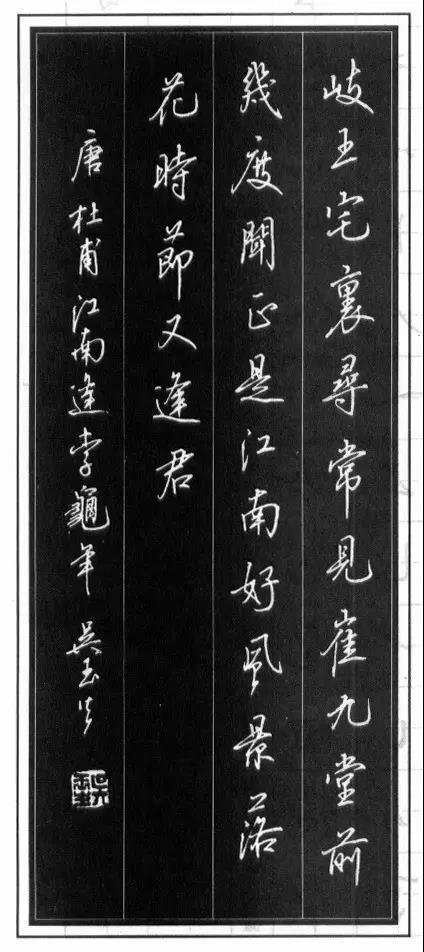 岐王宅裏尋常見崔九堂前
幾度聞正是江南好風景落
花時節又逢君
唐杜甫江南逢李龜年 吳玉生